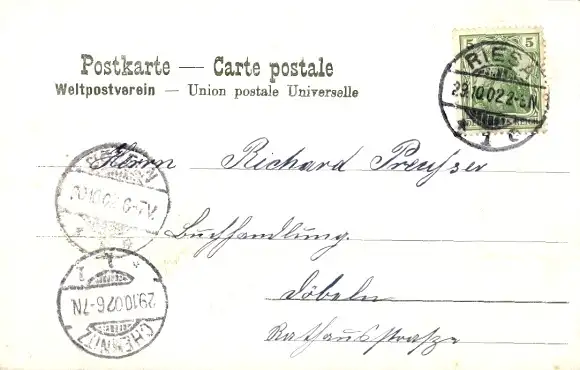 Postkarte — Carte postale
Weltpostverein — Union postale Universelle
5 5
RIESA
29.10.02.2-3N
Herrn Richard Preusser
Buchhandlung
Döbeln
Rathausstraße
29.10.02.6-7N
CHEMNITZ